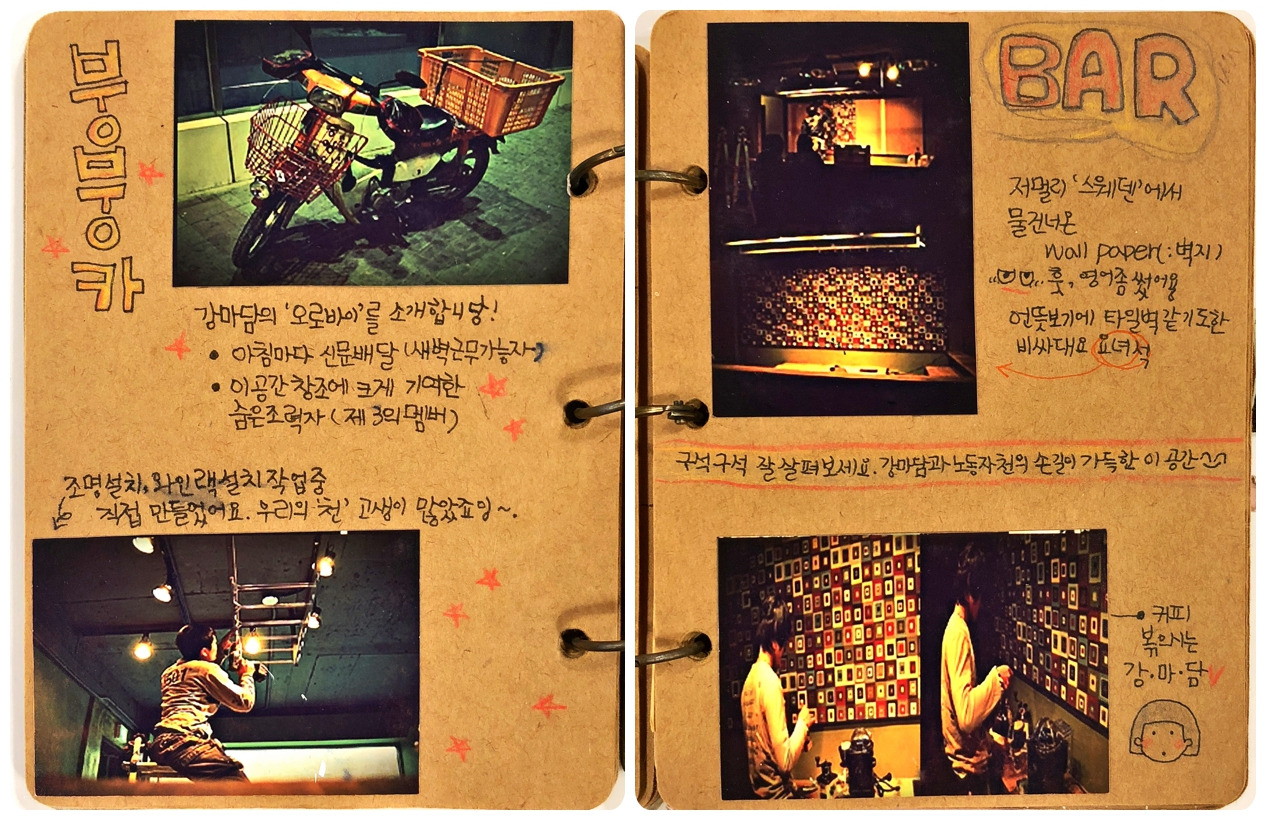 부웅부웅카
강마담의 '오로바이'를 소개합니당!
• 아침마다 신문배달 (새벽근무가능자)
• 이공간 창조에 크게 기여한
숨은조력자 (제 3의 멤버)
조명설치, 와인랙설치작업중
직접 만들었어요. 우리의 '천' 고생이 많았죠잉~.
BAR
저멀리 '스웨덴'에서
물건너온
wall paper (: 벽지)
훗, 영어좀 썼어용
언뜻보기에 타일벽같기도한
비싸대요 요녀석
구석구석 잘 살펴보세요. 강마담과 노동자천의 손길이 가득한 이 공간
커피
볶으시는
강·마·담